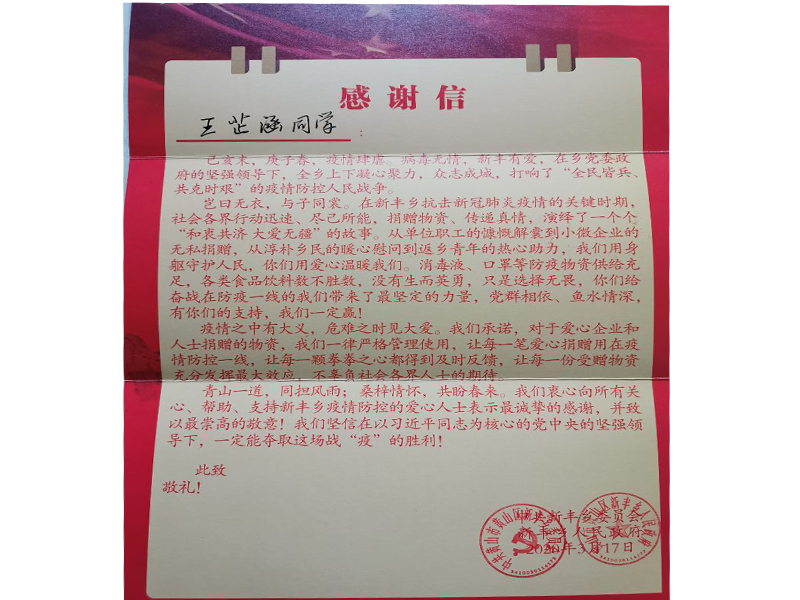 感谢信
王芷涵同学：
己亥末，庚子春，疫情肆虐。病毒无情，新丰有爱，在乡党委政
府的坚强领导下，全乡上下凝心聚力，众志成城，打响了“全民皆兵、
共克时艰”的疫情防控人民战争。
岂曰无衣，与子同裳。在新丰乡抗击新冠肺炎疫情的关键时期，
社会各界行动迅速、尽己所能，捐赠物资、传递真情，演绎了一个个
“和衷共济 大爱无疆”的故事。从单位职工的慷慨解囊到小微企业的
无私捐赠，从淳朴乡民的暖心慰问到返乡青年的热心助力，我们用身
躯守护人民，你们用爱心温暖我们。消毒液、口罩等防疫物资供给充
足，各类食品饮料数不胜数，没有生而英勇，只是选择无畏，你们给
奋战在防疫一线的我们带来了最坚定的力量，党群相依、鱼水情深，
有你们的支持，我们一定赢！
疫情之中有大义，危难之时见大爱。我们承诺，对于爱心企业和
人士捐赠的物资，我们一律严格管理使用，让每一笔爱心捐赠用在疫
情防控一线，让每一颗拳拳之心都得到及时反馈，让每一份受赠物资
充分发挥最大效应，不辜负社会各界人士的期待。
青山一道，同担风雨；桑梓情怀，共盼春来。我们衷心向所有关
心、帮助、支持新丰乡疫情防控的爱心人士表示最诚挚的感谢，并致
以最崇高的敬意！我们坚信在以习近平同志为核心的党中央的坚强领
导下，一定能夺取这场战“疫”的胜利！
此致
敬礼！
中共新丰乡委员会
新丰乡人民政府
2020年3月17日